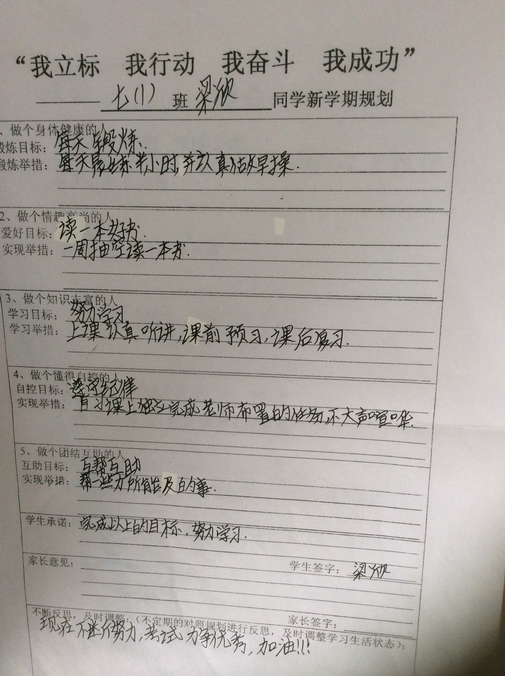 “我立标 我行动 我奋斗 我成功”
七(1) 班 梁欣 同学新学期规划
、做个身体健康的人
锻炼目标：每天早锻炼.
锻炼举措：每天晨练半小时,并认真做早操.
2、做个情趣高尚的人
爱好目标：读一本好书.
实现举措：一周抽空读一本书.
3、做个知识丰富的人
学习目标：努力学习
学习举措：上课认真听讲,课前预习,课后复习.
4、做个懂得自控的人
自控目标：遵守纪律
实现举措：自习课上独立完成老师布置的任务,不大声喧哗.
5、做个团结互助的人
互助目标：互帮互助
实现举措：帮一些力所能及的事.
学生承诺：完成以上的目标,努力学习.
学生签字：梁欣
家长意见：
家长签字：
不断反思，及时调整：（不定期的对照规划进行反思，及时调整学习生活状态）：
现在不断努力,考试力争优秀,加油!!!